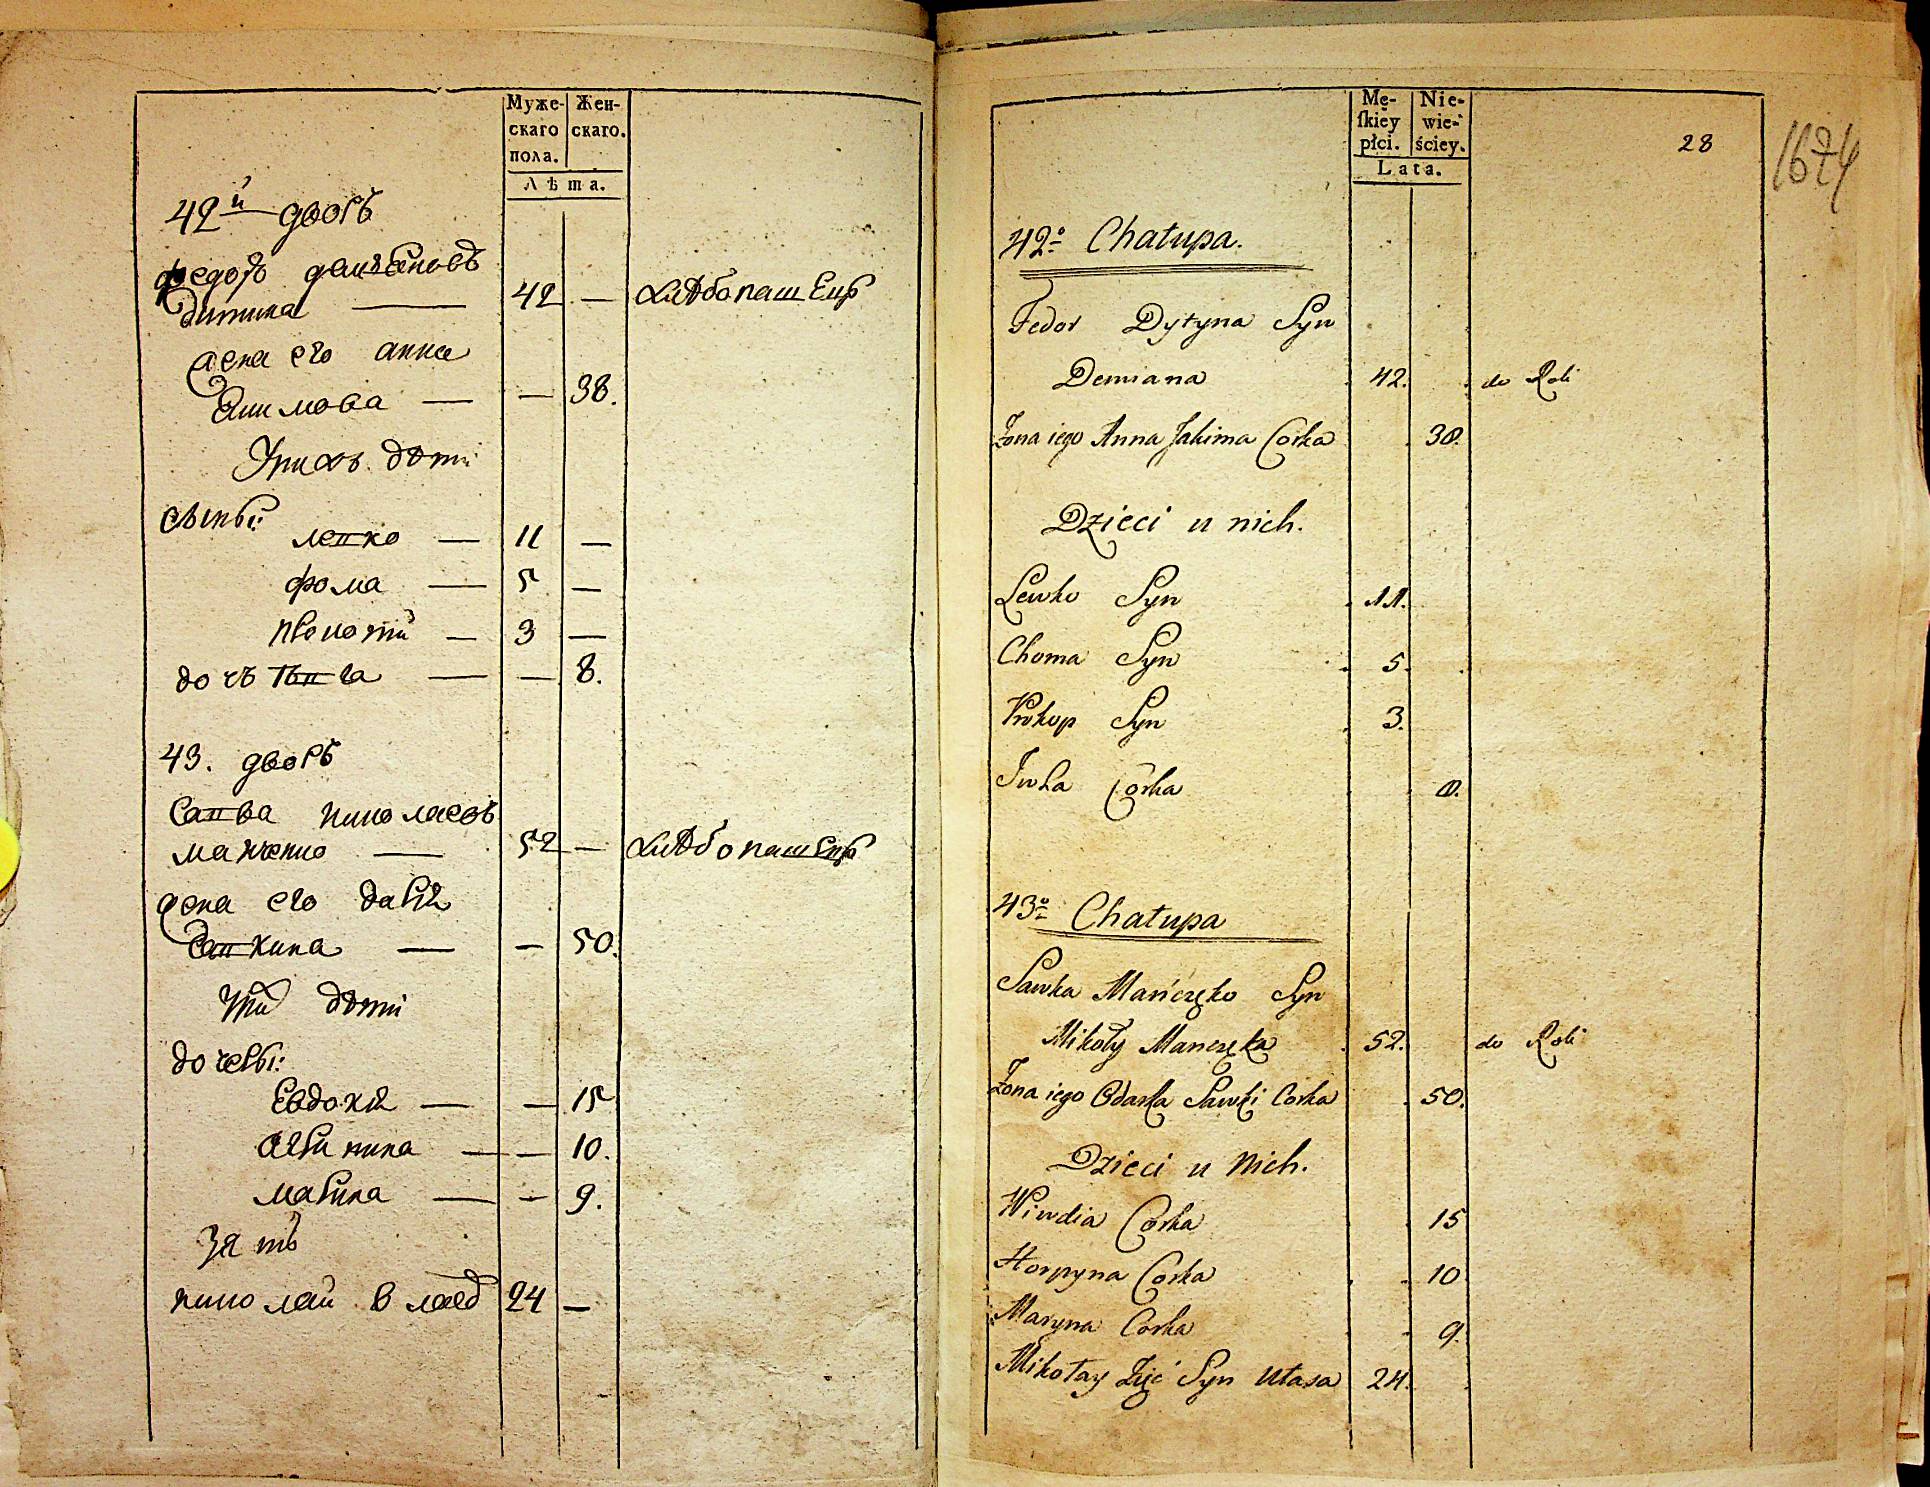 Муже-
скаго
пола.
Жен-
скаго.
Лѣта.
42й дворъ
федоръ демьяновъ
дитина — 42 — хлѣбопашецъ
жена его анна
Якимова — — 38.
У нихъ дѣти
сыны:
левко — 11 —
фома — 5 —
прокопій — 3 —
дочь Ивга — — 8.
43. дворъ
Савва николаевъ
манченко — 52 — хлѣбопашецъ
жена его дарія
Савкина — — 50.
дѣти
дочеры:
Евдокія — — 15
агрипина — — 10.
марина — — 9.
Зять
николай власо 24 —
Mę-
ſkiey
płci.
Nie-
wie-
ściey.
Lata.
28
1674
42o Chałupa.
Fedor Dytyna Syn
Demiana 42. do Roli
Żona iego Anna Jakima Corka 38.
Dzieci u nich.
Lewko Syn 11.
Choma Syn 5.
Prokop Syn 3.
Iwha Córka 8.
43o Chałupa
Sawka Mańczęko Syn
Mikoły Manczęka 52. do Roli
Żona iego Odarka Sawki Corka 50.
Dzieci u Nich.
Wiwdia Córka 15
Horpyna Córka 10
Maryna Corka 9.
Mikołay Zięć Syn Własa 24.